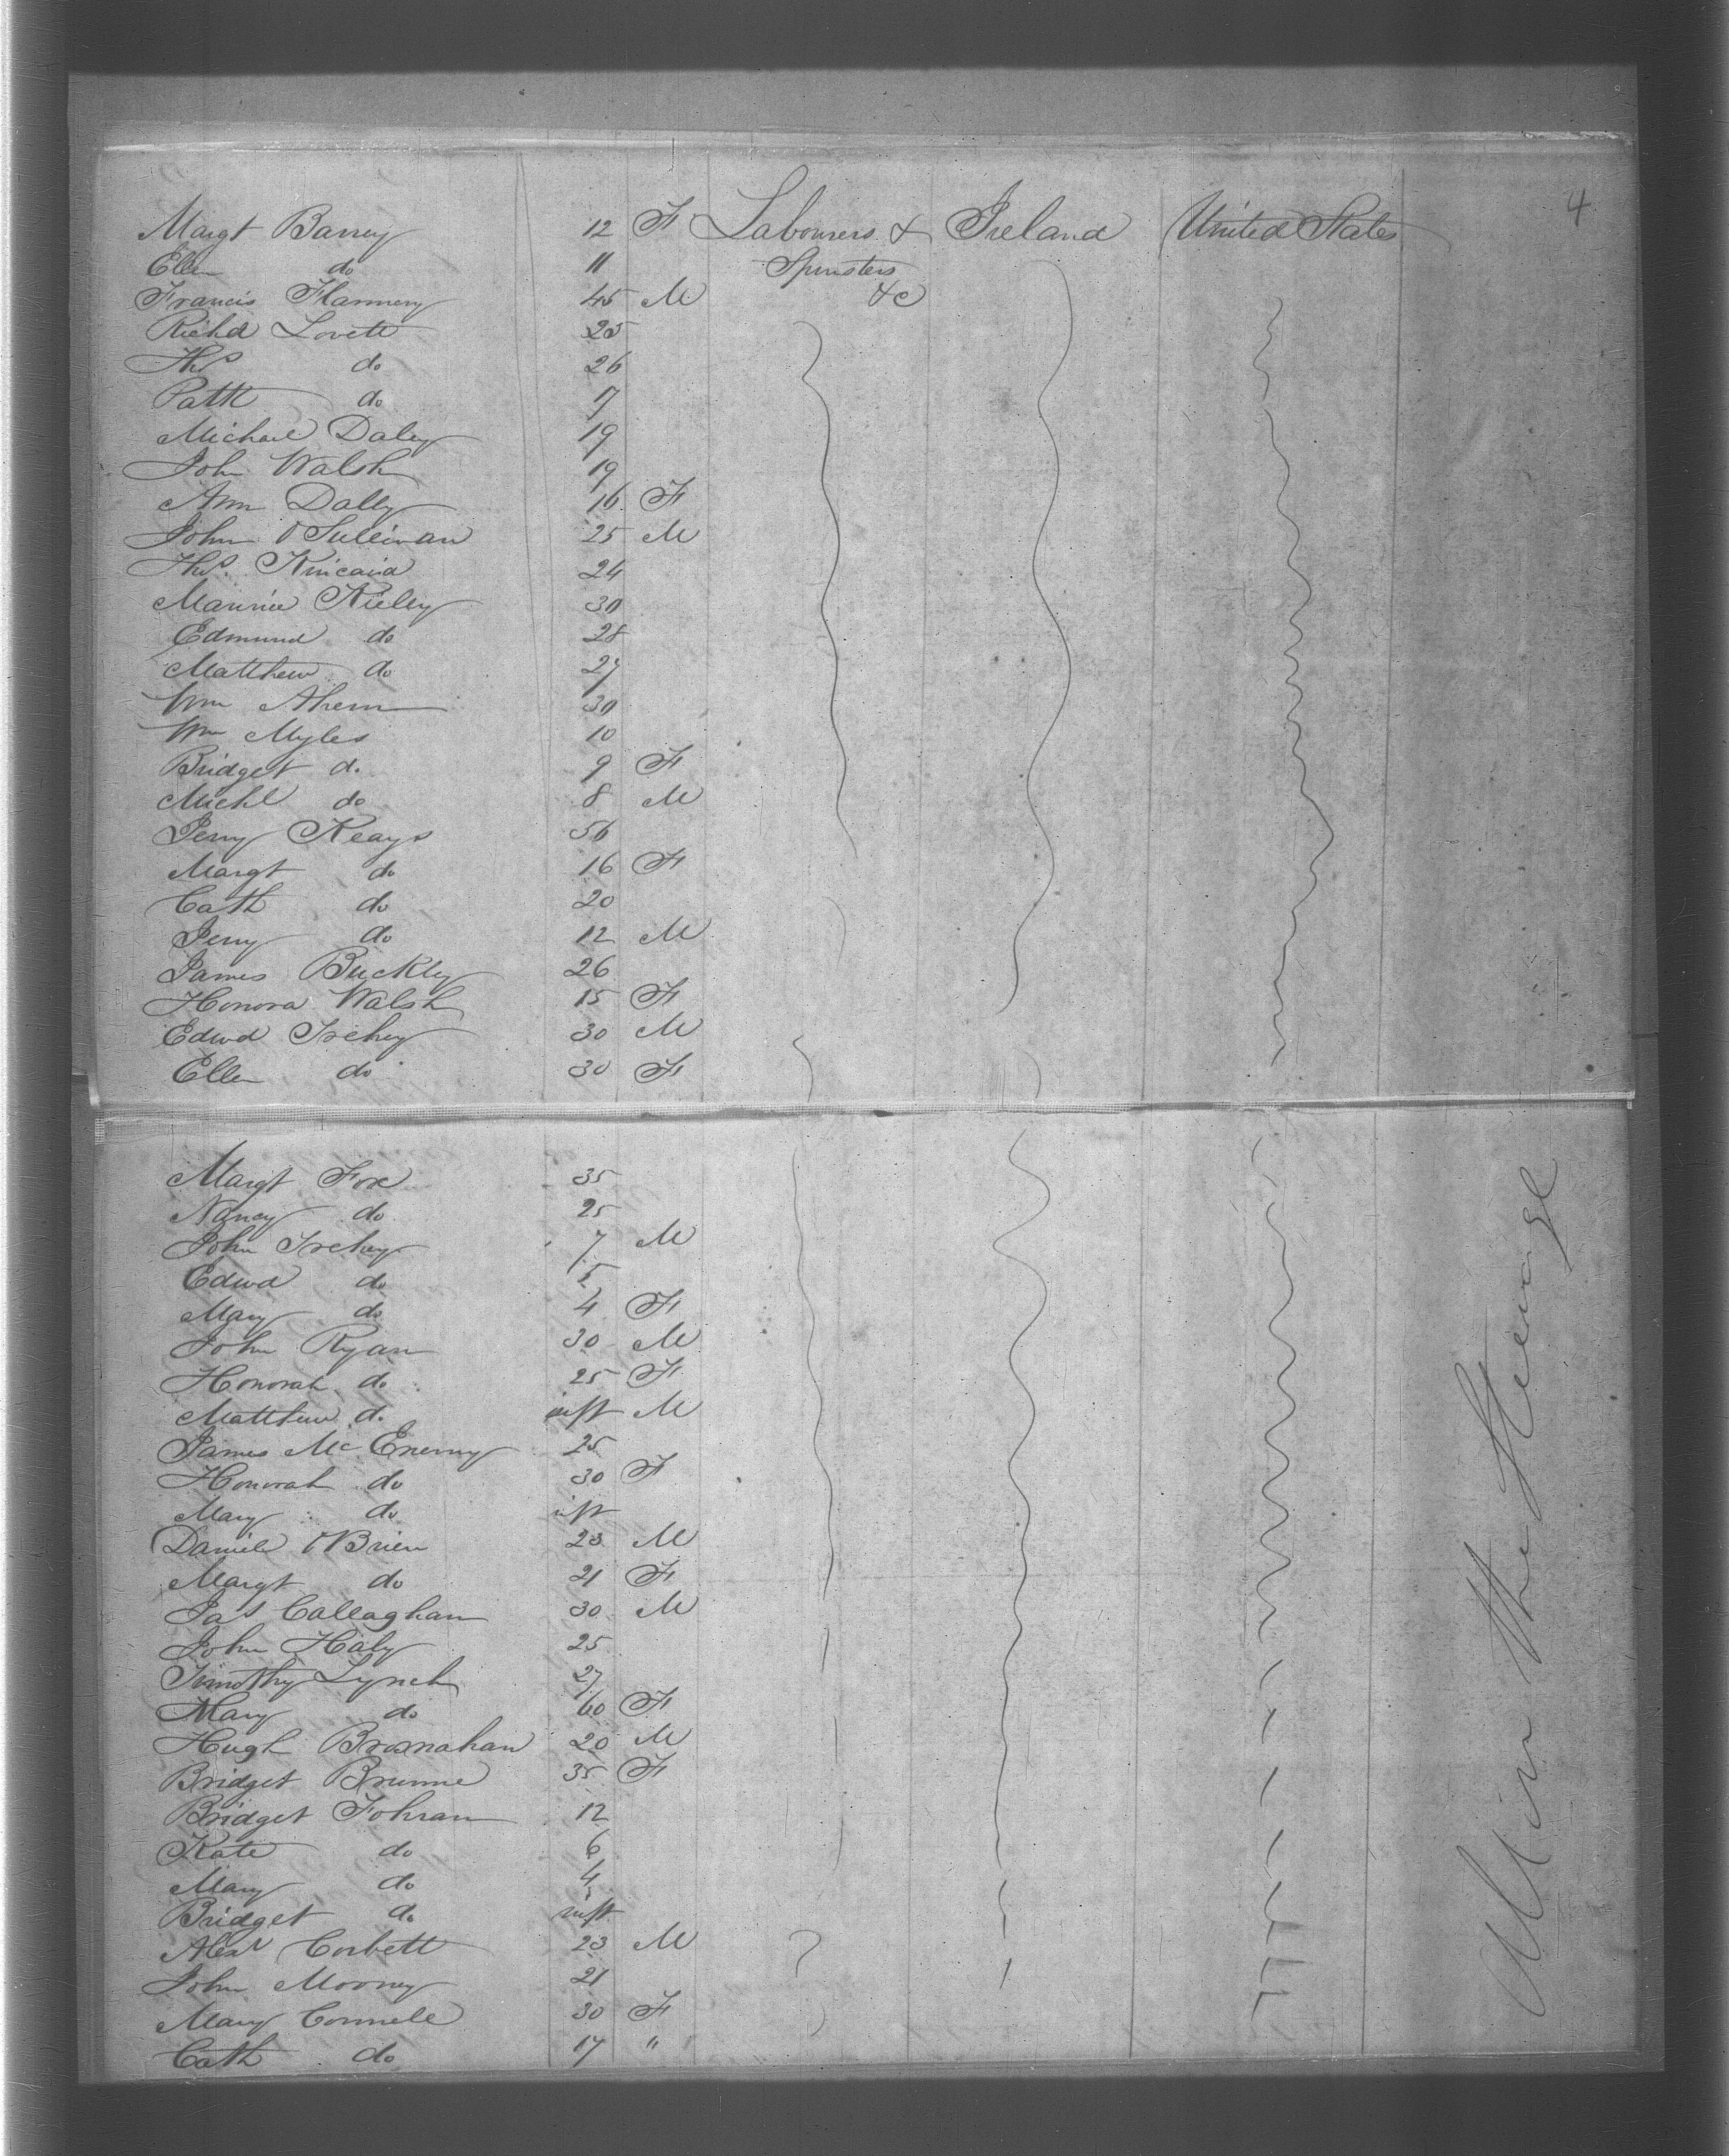 4
Margt Barrey 12 F Labourers & Ireland United States
Ellen do 11 Spinsters
Francis Flannery 45 M &c
Richd Lovett 25
Thos do 26
Patk do 17
Michael Daley 19
John Walsh 19
Ann Dally 16 F
John O'Sullivan 25 M
Thos. Kincaid 24
Maurice Kieley 30
Edmund do 28
Matthew do 27
Wm Ahern 30
Wm Myles 10
Bridget d. 9 F
Michl do 8 M
Jerry Keays 56
Margt do 16 F
Cath do 20
Jerry do 12 M
James Buckley 26
Honora Walsh 15 F
Edwd Trehey 30 M
Ellen do 30 F
Margt Fox 35
Nancy do 25
John Trehey 7 M
Edwd do 5
Mary do 4 F
John Ryan 30 M
Honorah do 25 F
Matthew d. inft M
James McEnerny 25
Honorah do 30 F
Mary do inft
Daniel O'Brien 23 M
Margt do 21 F
Jas Callaghan 30 M
John Haly 25
Timothy Lynch 27
Mary do 60 F
Hugh Brosnahan 20 M
Bridget Brunne 35 F
Bridget Fohran 12
Kate do 6
Mary do 4
Bridget do inft
Alexr Corbett 23 M
John Mooney 21
Mary Connell 30 F
Cath do 17 "
All in the Steerage